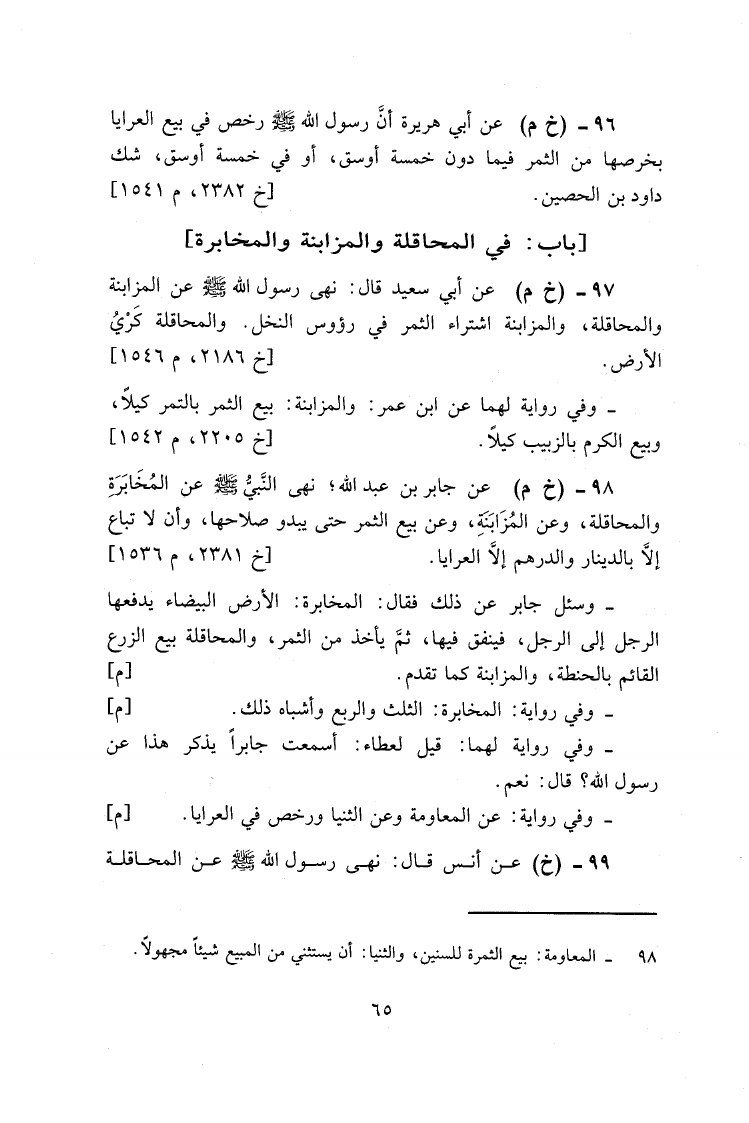 ٩٦ - (خ م) عن أبي هريرة أنَّ رسول الله ﷺ رخص في بيع العرايا
بخرصها من الثمر فيما دون خمسة أوسق، أو في خمسة أوسق، شك
داود بن الحصين. [خ ٢٣٨٢، م ١٥٤١]
[باب: في المحاقلة والمزابنة والمخابرة]
٩٧ - (خ م) عن أبي سعيد قال: نهى رسول الله ﷺ عن المزابنة
والمحاقلة، والمزابنة اشتراء الثمر في رؤوس النخل. والمحاقلة كَرْيُ
الأرض. [خ ٢١٨٦، م ١٥٤٦]
- وفي رواية لهما عن ابن عمر: والمزابنة: بيع الثمر بالتمر كيلاً،
وبيع الكرم بالزبيب كيلاً. [خ ٢٢٠٥، م ١٥٤٢]
٩٨ - (خ م) عن جابر بن عبد الله؛ نهى النَّبيُّ ﷺ عن المُخَابَرَةِ
والمحاقلة، وعن المُزَابَنَةِ، وعن بيع الثمر حتى يبدو صلاحها، وأن لا تباع
إلاَّ بالدينار والدرهم إلاَّ العرايا. [خ ٢٣٨١، م ١٥٣٦]
- وسئل جابر عن ذلك فقال: المخابرة: الأرض البيضاء يدفعها
الرجل إلى الرجل، فينفق فيها، ثمَّ يأخذ من الثمر، والمحاقلة بيع الزرع
القائم بالحنطة، والمزابنة كما تقدم. [م]
- وفي رواية: المخابرة: الثلث والربع وأشباه ذلك. [م]
- وفي رواية لهما: قيل لعطاء: أسمعت جابراً يذكر هذا عن
رسول الله؟ قال: نعم.
- وفي رواية: عن المعاومة وعن الثنيا ورخص في العرايا. [م]
٩٩ - (خ) عـن أنـس قـال: نهـى رسـول الله ﷺ عـن المحـاقلـة
٩٨ - المعاومة: بيع الثمرة للسنين، والثنيا: أن يستثني من المبيع شيئاً مجهولاً.
٦٥